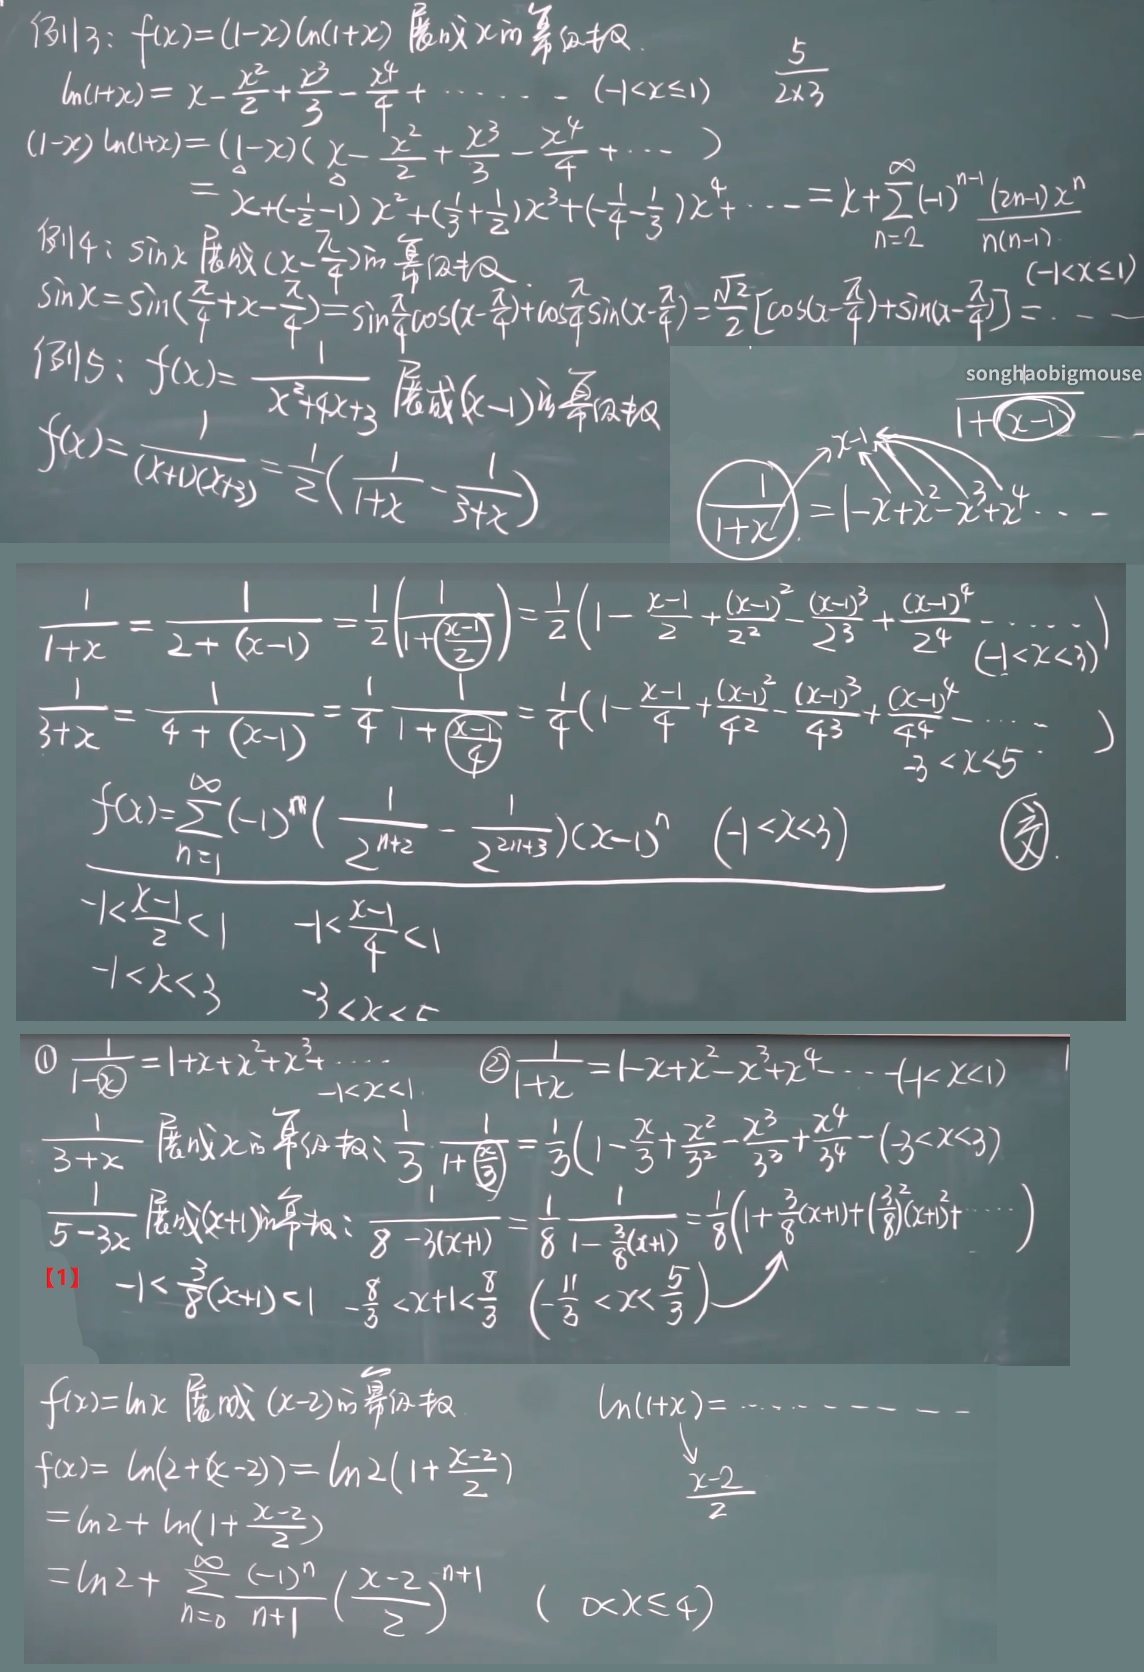 例3: f(x)=(1-x)ln(1+x) 展成x的幂级数.
ln(1+x)= x-x²/2+x³/3-x⁴/4+ ······ (-1<x≤1) 5/(2×3)
(1-x) ln(1+x)=(1-x)(x-x²/2+x³/3-x⁴/4+··· )
= x+(-1/2-1)x²+(1/3+1/2)x³+(-1/4-1/3)x⁴+····=x+∑_{n=2}^{∞}(-1)^{n-1} (2n-1)x^n/n(n-1).
(-1<x≤1)
例4: sinx展成(x-π/4)的幂级数
sinx=sin(π/4+x-π/4)=sinπ/4cos(x-π/4)+cosπ/4sin(x-π/4)=√2/2[cos(x-π/4)+sin(x-π/4)]=···
例5: f(x)=1/(x²+4x+3) 展成(x-1)的幂级数
f(x)=1/((x+1)(x+3))=1/2(1/(1+x)-1/(3+x))
songhaobigmouse
1/(1+(x-1))
x-1
1/(1+x)=1-x+x²-x³+x⁴····
1/(1+x)=1/(2+(x-1))=1/2(1/(1+(x-1)/2))=1/2(1-(x-1)/2+(x-1)²/2²-(x-1)³/2³+(x-1)⁴/2⁴-·····)
(-1<x<3)
1/(3+x)=1/(4+(x-1))=1/4 1/(1+(x-1)/4)=1/4(1-(x-1)/4+(x-1)²/4²-(x-1)³/4³+(x-1)⁴/4⁴-····· )
-3<x<5
f(x)=∑_{n=1}^{∞}(-1)^n(1/2^{n+2}-1/2^{2n+3})(x-1)^n (-1<x<3)
-1<(x-1)/2<1 -1<(x-1)/4<1
-1<x<3 -3<x<5
① 1/(1-x)=1+x+x²+x³+·····
-1<x<1.
② 1/(1+x)=1-x+x²-x³+x⁴-····(-1<x<1)
1/(3+x) 展成x的幂级数: 1/3·1/(1+x/3)=1/3(1-x/3+x²/3²-x³/3³+x⁴/3⁴-(-3<x<3)
1/(5-3x) 展成(x+1)的幂级数: 1/(8-3(x+1))=1/8 1/(1-3/8(x+1))=1/8(1+3/8(x+1)+(3/8)²(x+1)²+·····)
【1】 -1<3/8(x+1)<1 -8/3<x+1<8/3 (-11/3<x<5/3)
f(x)=lnx 展成(x-2)的幂级数 ln(1+x)=··········
f(x)= ln(2+(x-2))=ln2(1+(x-2)/2) (x-2)/2
=ln2+ln(1+(x-2)/2)
=ln2+ ∑_{n=0}^{∞} (-1)^n/(n+1) ((x-2)/2)^{n+1} ( 0<x≤4)